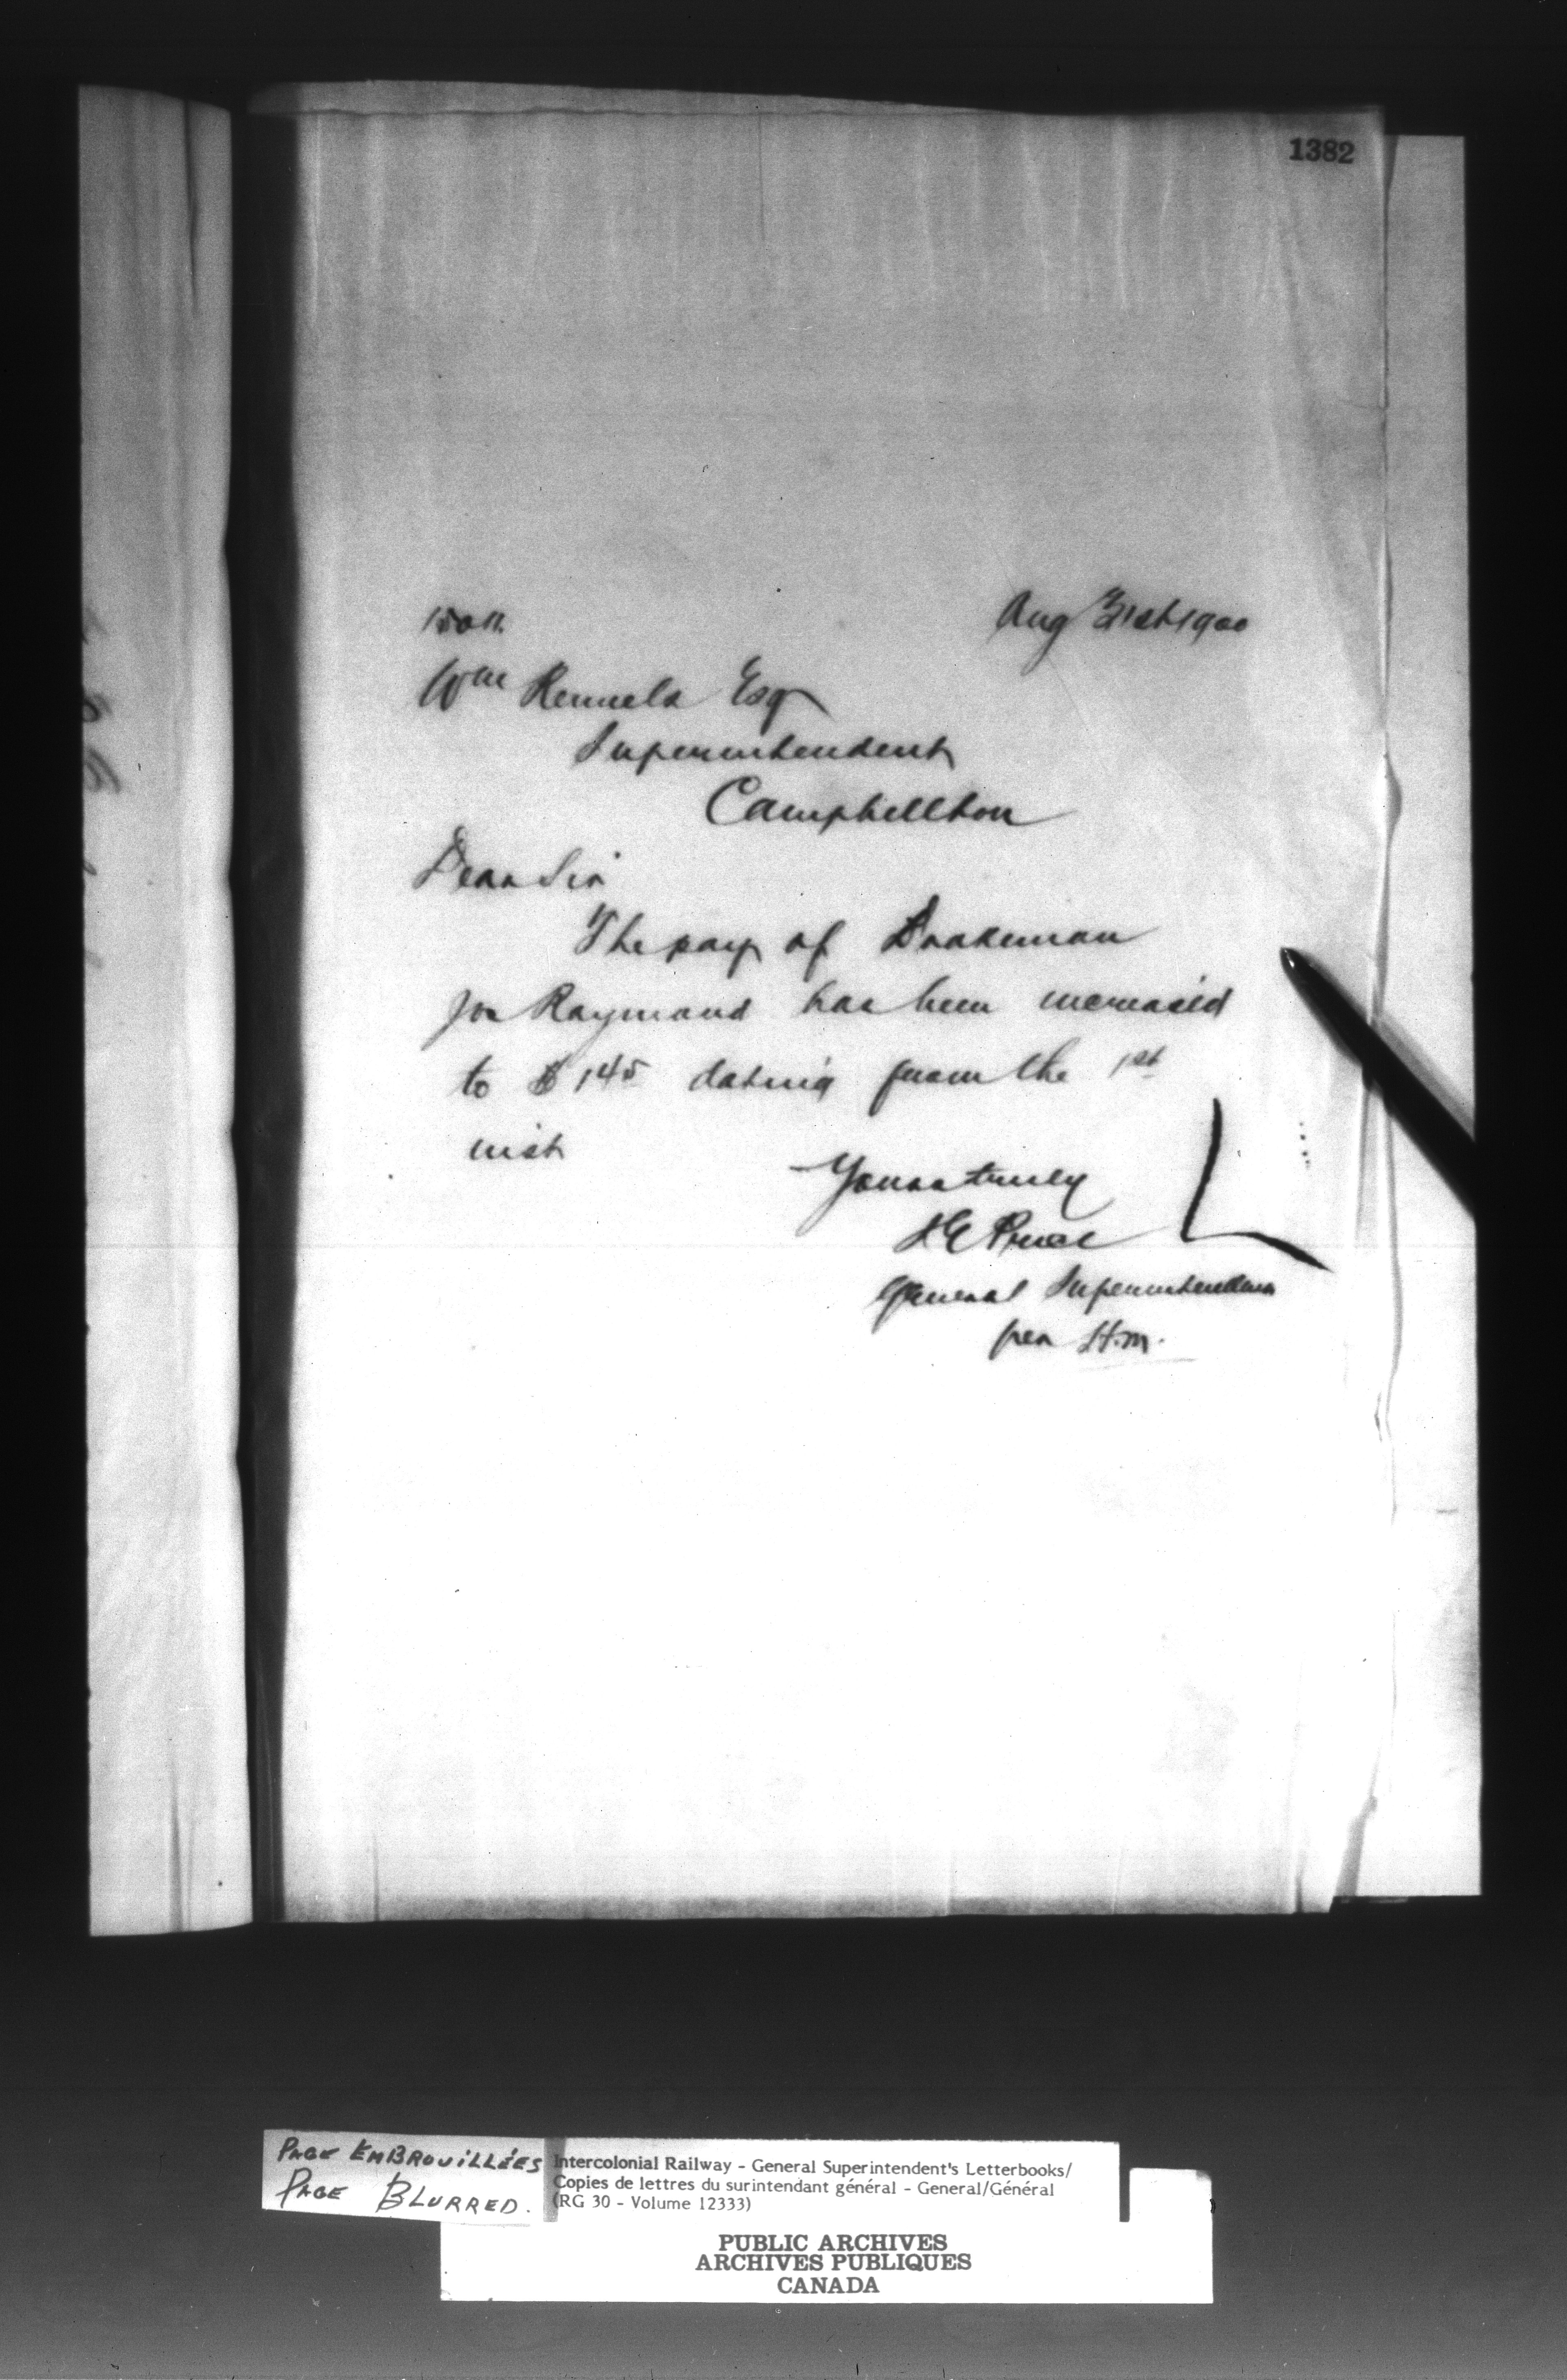 1382
Aug 31st 1900
Wm Rennels Esq
Superintendent
Campbellton
Dear Sir
The pay of Brakeman
Jos Raymond has been increased
to $ 145 dating from the 1st
inst
Yours truly
J E Price
General Superintendent
per H.M.
PAGE EMBROUILLÉES
PAGE BLURRED.
Intercolonial Railway - General Superintendent's Letterbooks/
Copies de lettres du surintendant général - General/Général
(RG 30 - Volume 12333)
PUBLIC ARCHIVES
ARCHIVES PUBLIQUES
CANADA